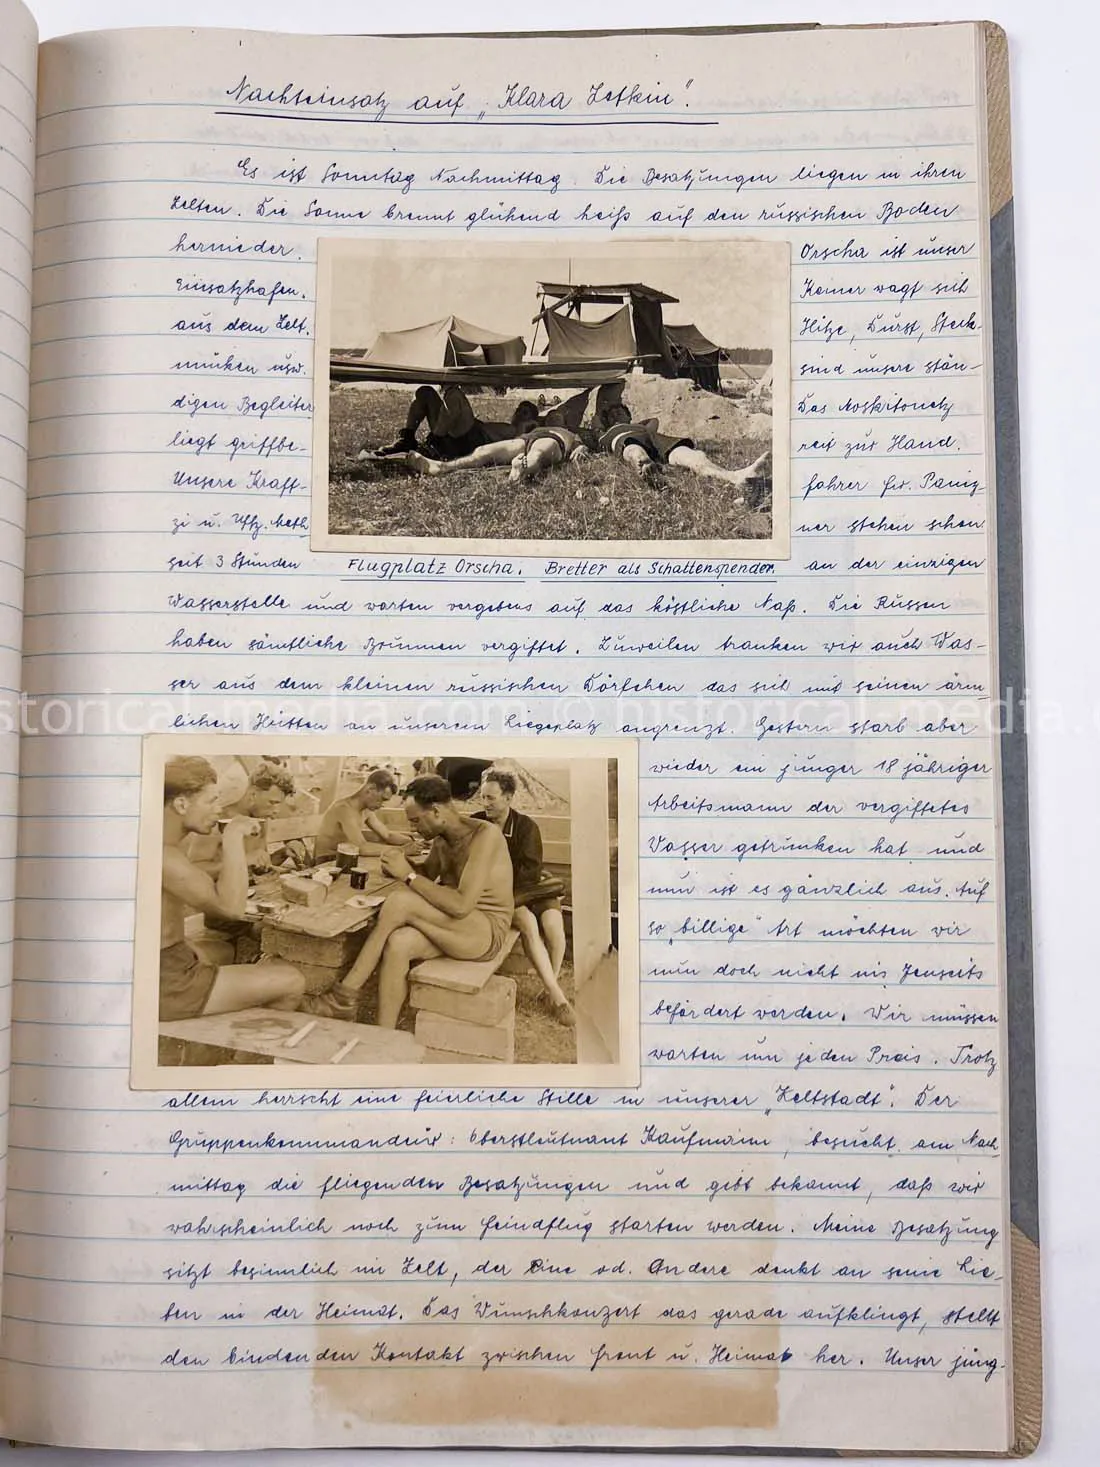 Nachteinsatz auf „Klara Zetkin“.
Es ist Sonntag Nachmittag. Die Besatzungen liegen in ihren
Zelten. Die Sonne brennt glühend heiß auf den russischen Boden
hernieder. Orscha ist unser
Einsatzhafen. Keiner wagt sich
aus dem Zelt. Hitze, Durst, Steck-
mücken usw. sind unsere stän-
digen Begleiter Das Moskitonetz
liegt griffbe- reit zur Hand.
Unsere Kraft- fahrer Gefr. Panig-
zi u. Uffz. Meth ner stehen schon
seit 3 Stunden an der einzigen
Flugplatz Orscha. Bretter als Schattenspender.
Wasserstelle und warten vergebens auf das köstliche Naß. Die Russen
haben sämtliche Brunnen vergiftet. Zuweilen tranken wir auch Was-
ser aus dem kleinen russischen Dörfchen das sich mit seinen ärm
lichen Hütten an unserem Liegeplatz angrenzt. Gestern starb aber
wieder ein junger 18 jähriger
Arbeitsmann der vergiftetes
Wasser getrunken hat und
nun ist es gänzlich aus. Auf
so „billige“ Art möchten wir
nun doch nicht ins Jenseits
befördert werden. Wir müssen
warten um jeden Preis. Trotz
allem herrscht eine feierliche Stille in unserer „Zeltstadt“. Der
Gruppenkommandeur: Oberstleutnant Kaufmann, besucht am Nach
mittag die fliegenden Besatzungen und gibt bekannt, daß wir
wahrscheinlich noch zum Feindflug starten werden. Meine Besatzung
sitzt besinnlich im Zelt, der Eine od. Andere denkt an seine Lie-
ben in der Heimat. Das Wunschkonzert das gerade aufklingt, stellt
den bindenden Kontakt zwischen Front u. Heimat her. Unser jüng-